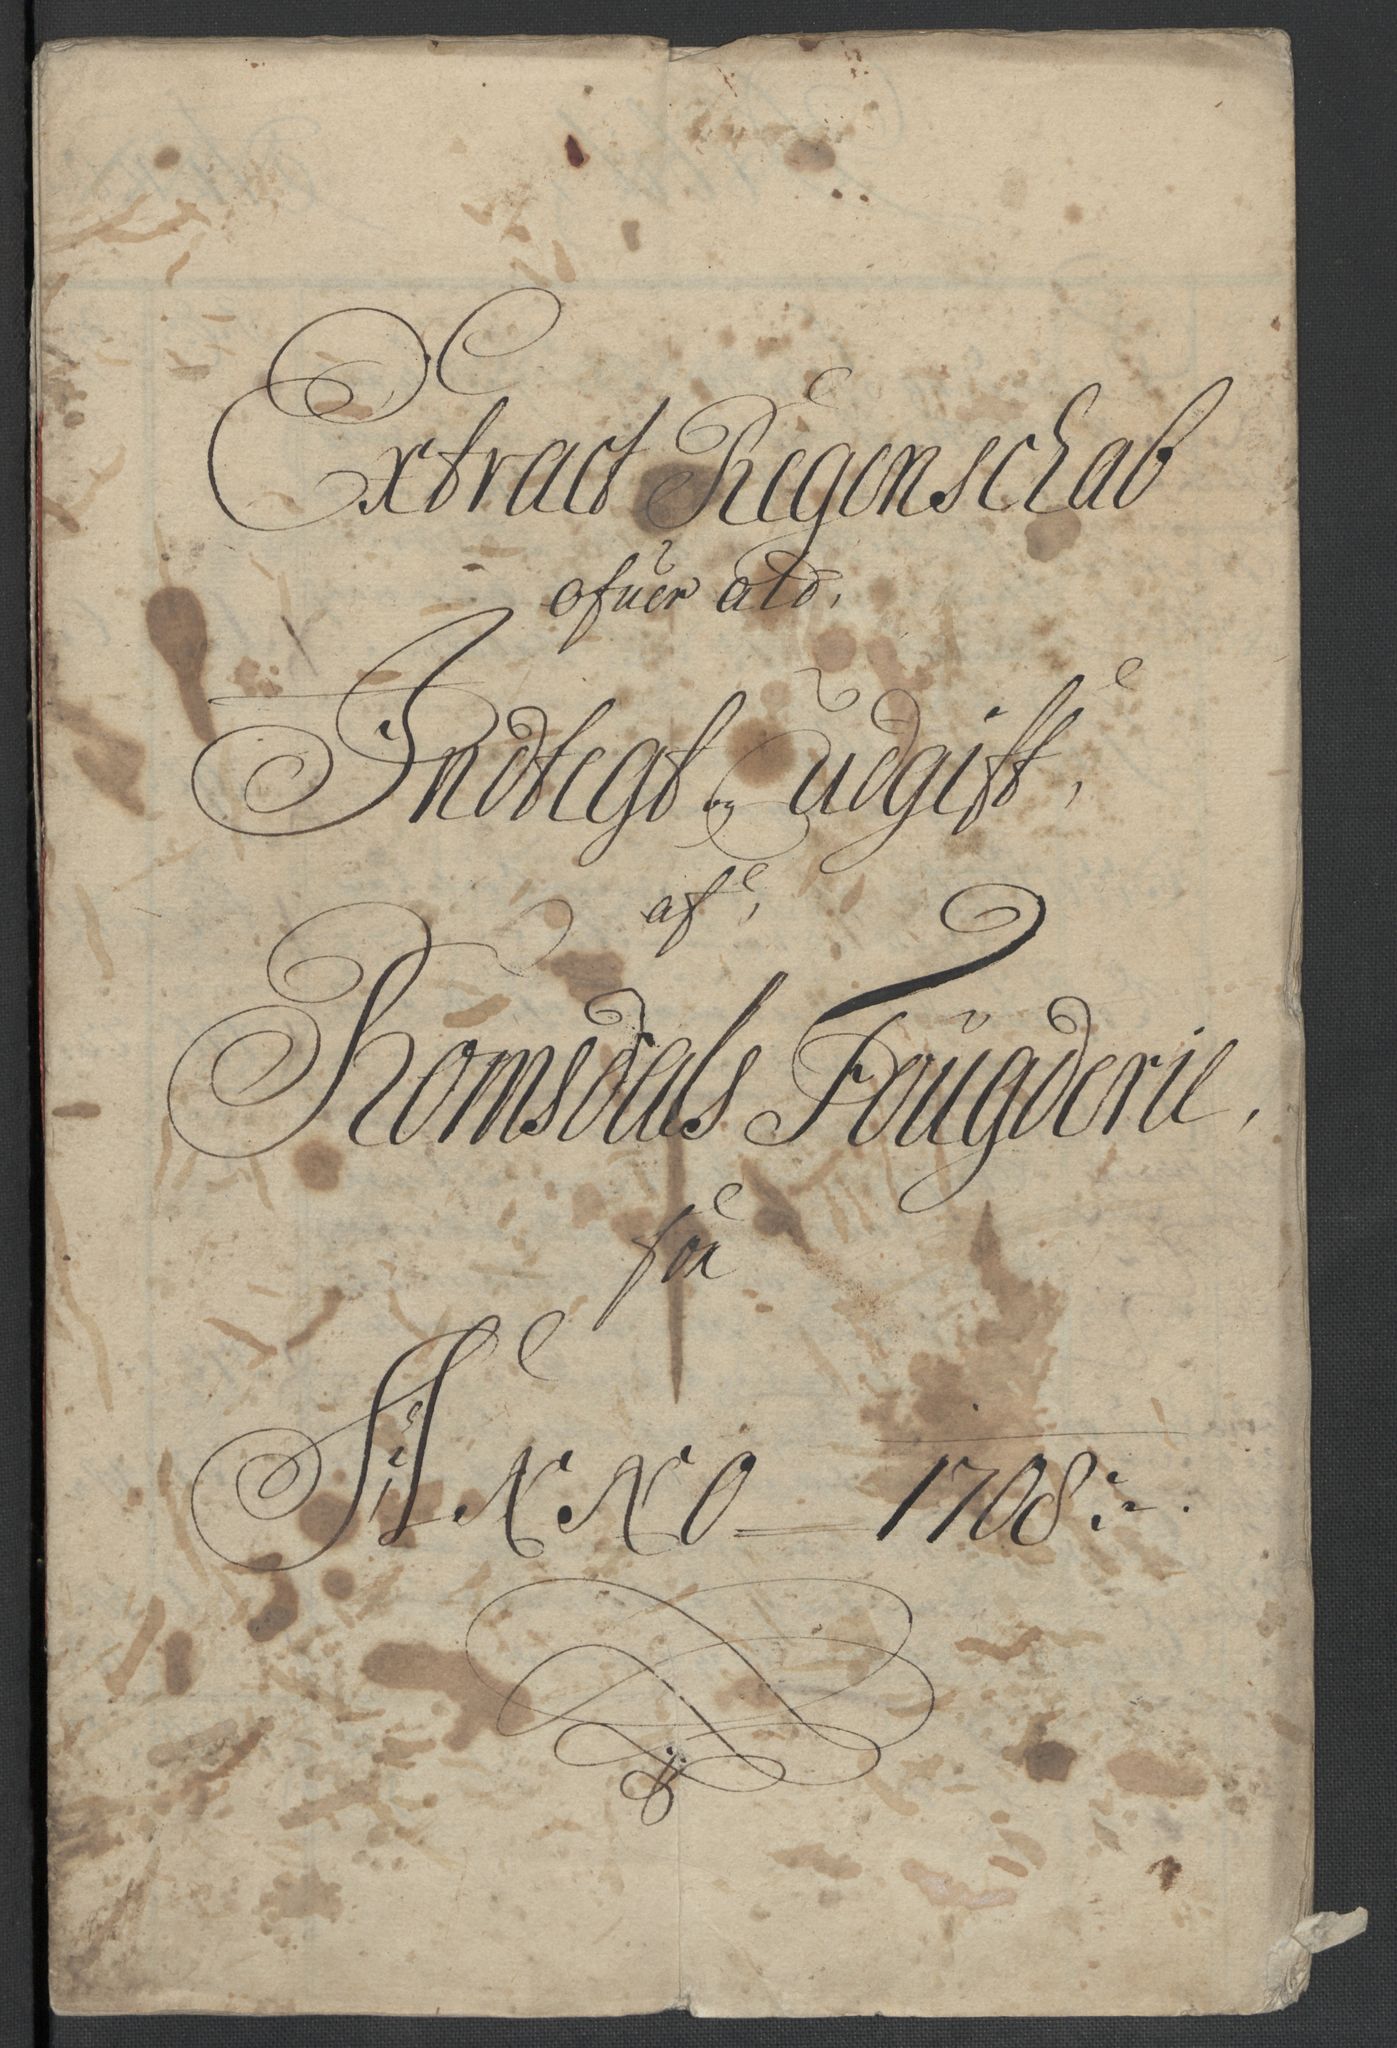 Extract Regenschab
ofuer ald,
Indtegt og udgift,
af,
Romsdals Fougderie,
for
Anno 1708: